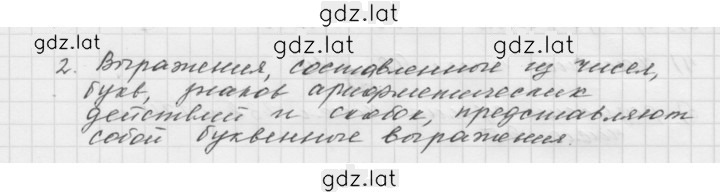 gdz.lat
gdz.lat gdz.lat gdz.lat
2. Выражения, составленные из чисел,
букв, знаков арифметических
действий и скобок, представляют
собой буквенные выражения.
gdz.lat